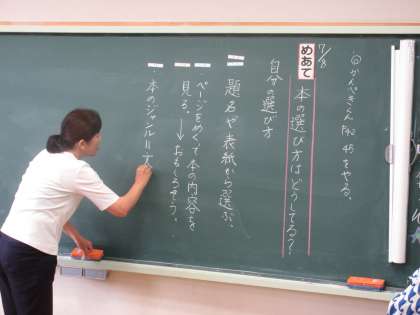 ㋛かんぺきくんP42 45をやる。
7/8
めあて
本の選び方はどうしてる?
自分の選び方
題名や表紙から選ぶ。
・ページをめくって本の内容を
見る。→おもしろそう。
・本のジャンル=